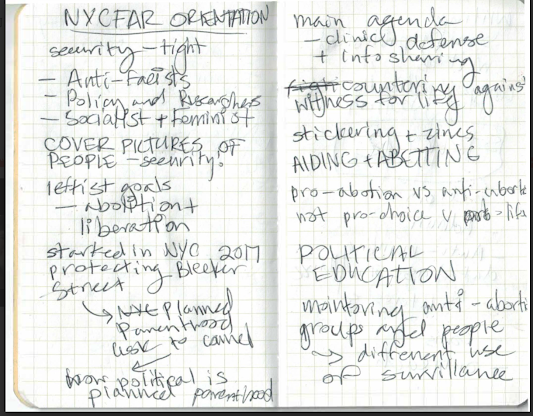 NYCFAR ORIENTATION
security - tight
- Anti-facists
- Policy and Researchers
- Socialist + feminist
COVER PICTURES OF
PEOPLE - security!
leftist goals
- abolition +
liberation
started in NYC 2017
protecting Bleeker
Street
↳ Planned
Parenthood
to cancel
how political is
planned parenthood
main agenda
- clinic defense
+ info sharing
countering against
witness for life
stickering + zines
AIDING + ABETTING
pro-abotion vs anti-aborti
not pro-choice v pro-life
POLITICAL
EDUCATION
monitoring anti-aborti
groups and people
↳ different use
of survillance